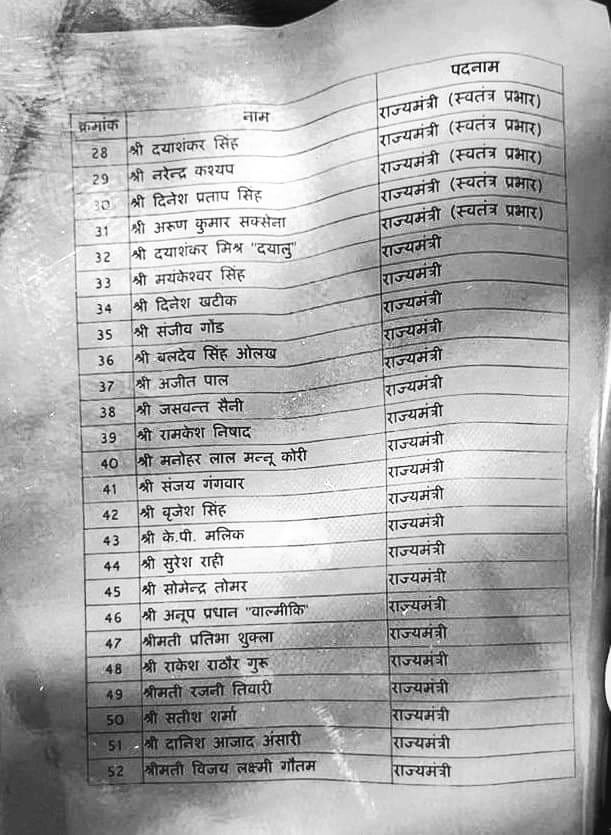 क्रमांक नाम पदनाम
28 श्री दयाशंकर सिंह राज्यमंत्री (स्वतंत्र प्रभार)
29 श्री नरेन्द्र कश्यप राज्यमंत्री (स्वतंत्र प्रभार)
30 श्री दिनेश प्रताप सिंह राज्यमंत्री (स्वतंत्र प्रभार)
31 श्री अरूण कुमार सक्सेना राज्यमंत्री (स्वतंत्र प्रभार)
32 श्री दयाशंकर मिश्र "दयालु" राज्यमंत्री (स्वतंत्र प्रभार)
33 श्री मयंकेश्वर सिंह राज्यमंत्री
34 श्री दिनेश खटीक राज्यमंत्री
35 श्री संजीव गोंड राज्यमंत्री
36 श्री बलदेव सिंह ओलख राज्यमंत्री
37 श्री अजीत पाल राज्यमंत्री
38 श्री जसवन्त सैनी राज्यमंत्री
39 श्री रामकेश निषाद राज्यमंत्री
40 श्री मनोहर लाल मन्नू कोरी राज्यमंत्री
41 श्री संजय गंगवार राज्यमंत्री
42 श्री बृजेश सिंह राज्यमंत्री
43 श्री के.पी. मलिक राज्यमंत्री
44 श्री सुरेश राही राज्यमंत्री
45 श्री सोमेन्द्र तोमर राज्यमंत्री
46 श्री अनूप प्रधान "वाल्मीकि" राज्यमंत्री
47 श्रीमती प्रतिभा शुक्ला राज्यमंत्री
48 श्री राकेश राठौर गुरू राज्यमंत्री
49 श्रीमती रजनी तिवारी राज्यमंत्री
50 श्री सतीश शर्मा राज्यमंत्री
51 श्री दानिश आजाद अंसारी राज्यमंत्री
52 श्रीमती विजय लक्ष्मी गौतम राज्यमंत्री